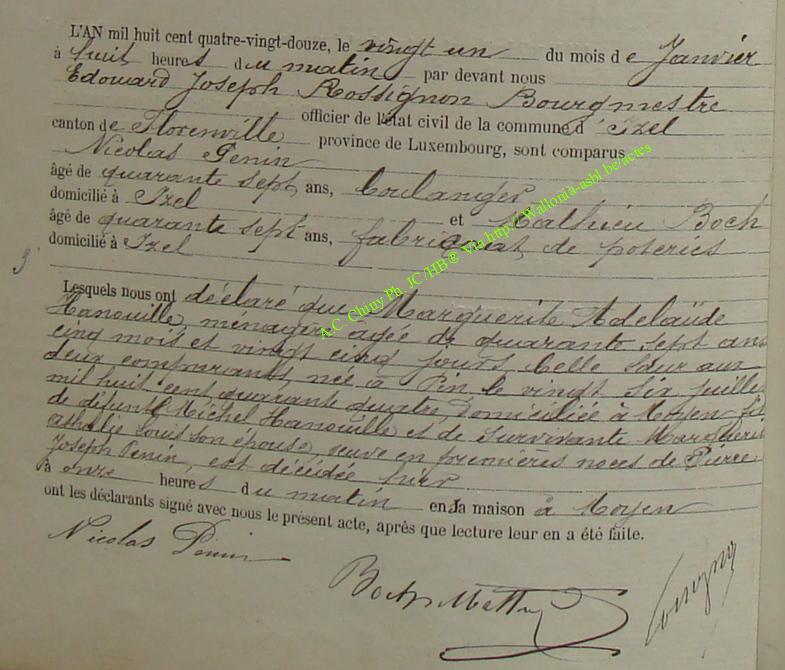 L'AN mil huit cent quatre-vingt-douze, le vingt un du mois de Janvier
à huit heures du matin par devant nous
Edouard Joseph Rossignon Bourgmestre
officier de l'état civil de la commune d'Izel
canton de Florenville province de Luxembourg, sont comparus
Nicolas Penin
âgé de quarante sept ans, boulanger
domicilié à Izel et Mathieu Boch
âgé de quarante sept ans, fabricant de poteries
domicilié à Izel
3
Lesquels nous ont déclaré que Marguerite Adelaïde
Hanouille, ménagère, agée de quarante sept ans
cinq mois et vingt cinq jours, belle sœur aux
deux comparants, née à Pin le vingt six juillet
mil huit cent quarante quatre, domiciliée à Moyen,
de défunt Michel Hanouille et de survivante
Louis son épouse, veuve en premières noces de Pierre
Joseph Penin, est décédée hier
à onze heures du matin en sa maison à Moyen
ont les déclarants signé avec nous le présent acte, après que lecture leur en a été faite.
Nicolas Penin
Boch Matt
A.C. Chiny Ph JC/HB® Via http://Wallonia-asbl.be/actes